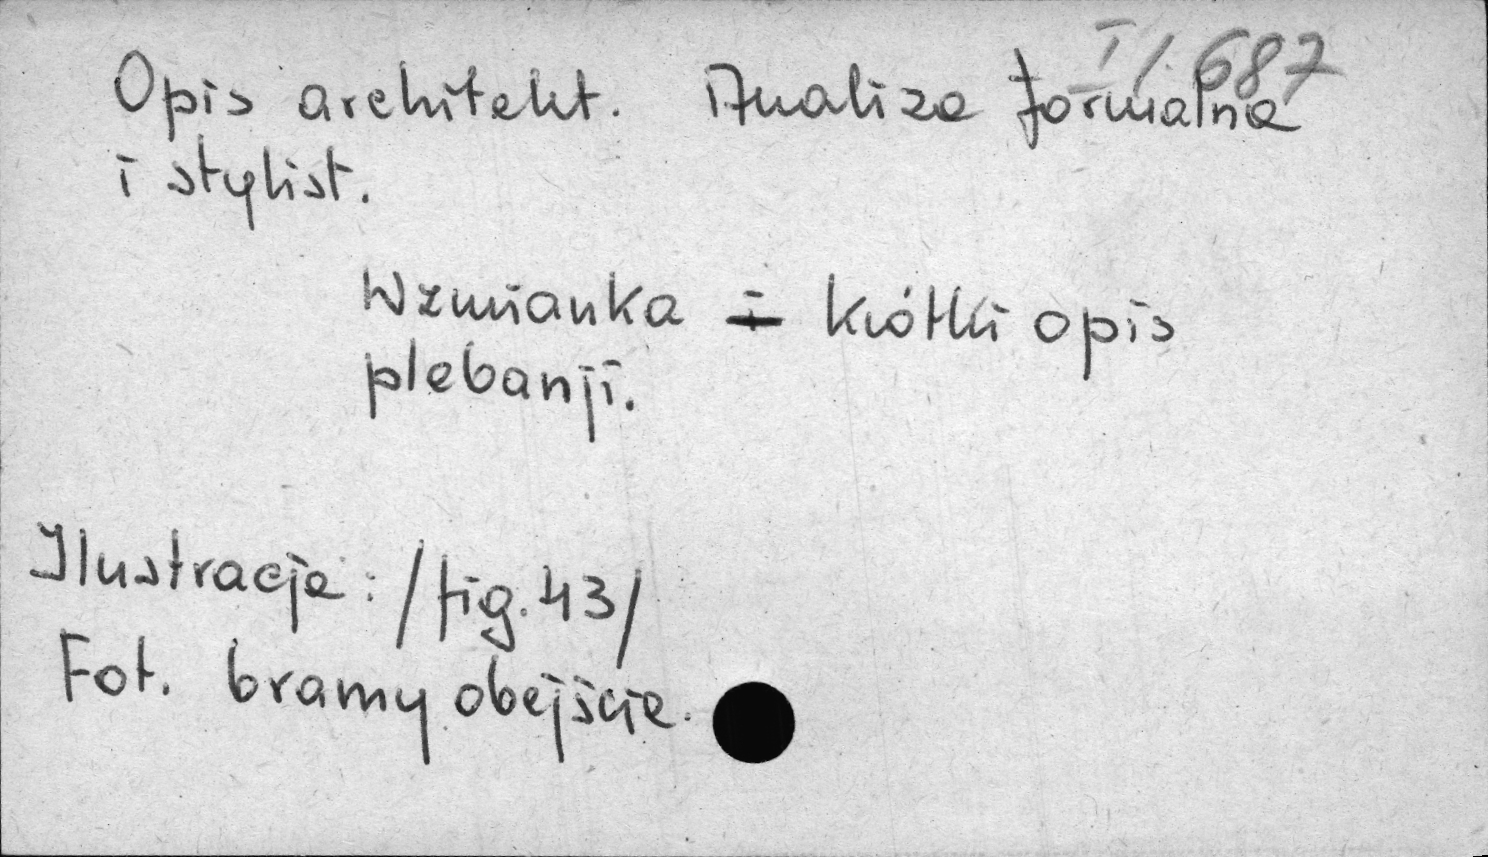 I/.687
Opis architekt. Analiza formalna
i stylist.
Wzmianka i krótki opis
plebanji.
Ilustracje: /fig. 43/
Fot. bramy obejście.